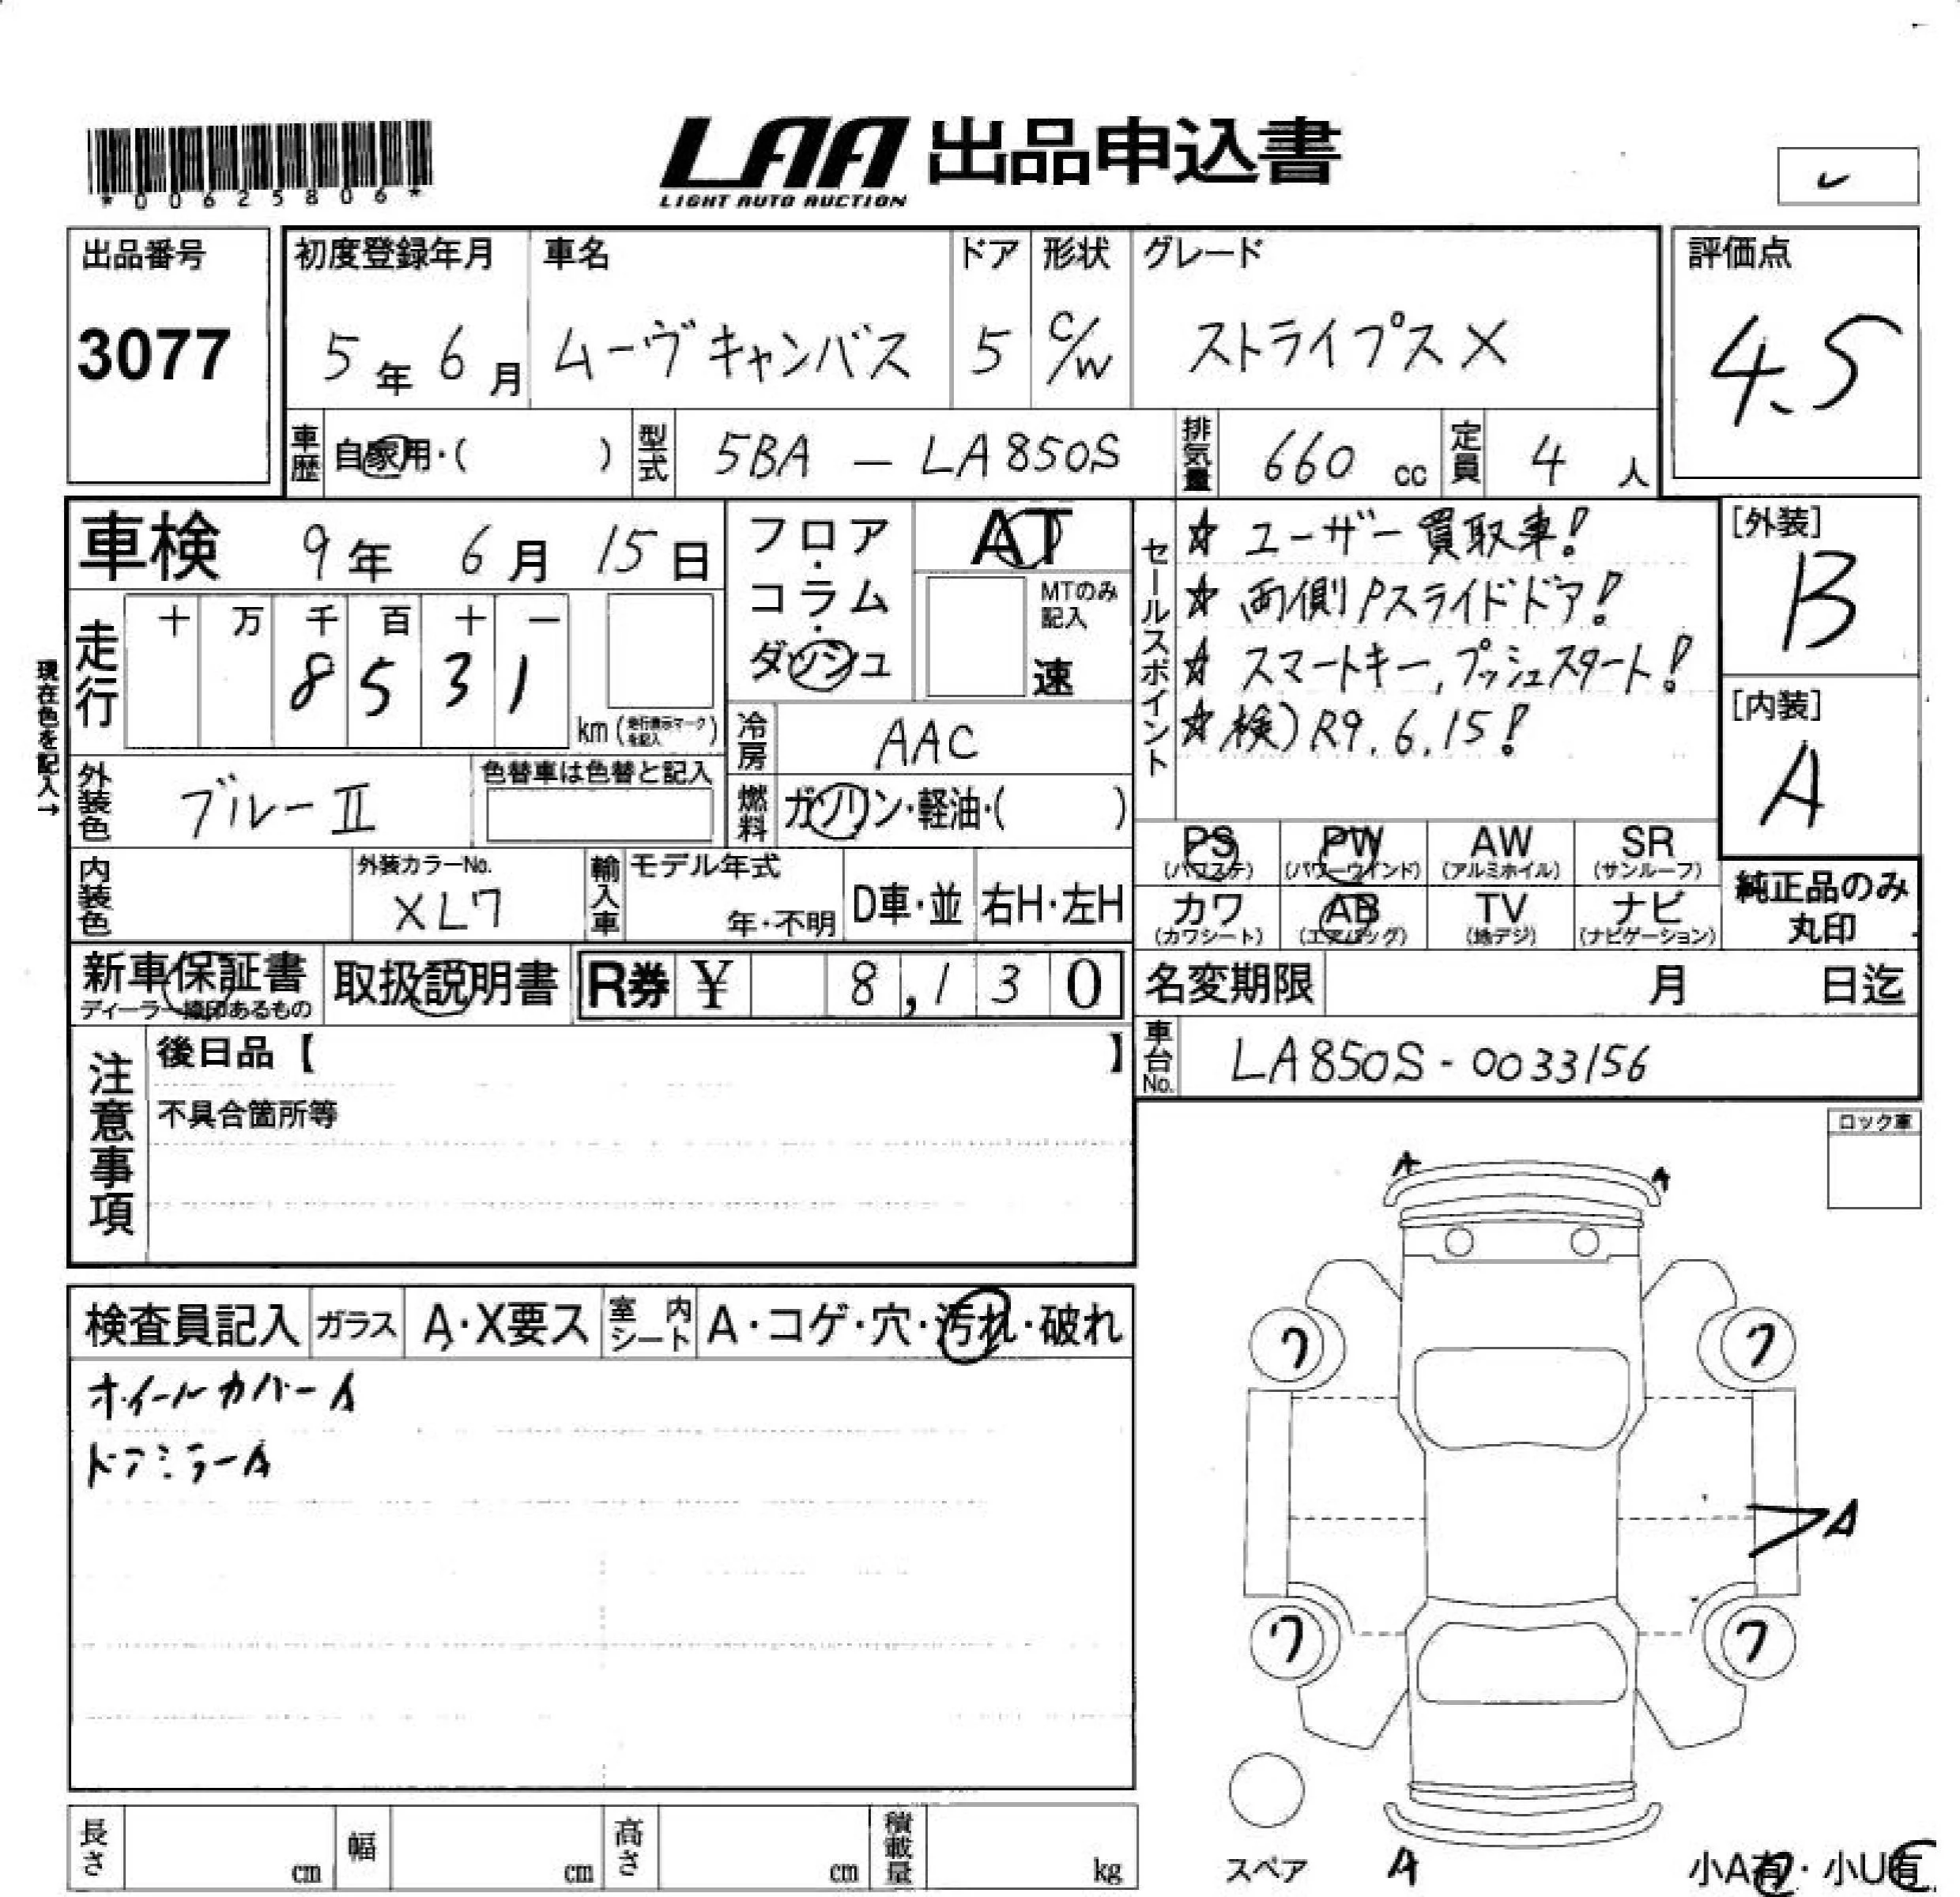 *00625806*
LAA 出品申込書
LIGHT AUTO AUCTION
出品番号
3077
初度登録年月
5年6月
車名
ムーヴキャンバス
ドア
5
形状
C/W
グレード
ストライプスX
評価点
4.5
車歴
自家用・( )
型式
5BA - LA850S
排気量
660 cc
定員
4 人
車検 9年 6月 15日
走行
十 万 千 百 十 一
8 5 3 1
km (走行表示マークを記入)
現在色を記入→
外装色
ブルーII
色替車は色替と記入
フロア・コラム・ダッシュ
AT
MTのみ記入
速
冷房
AAC
燃料
ガソリン・軽油・( )
セールスポイント
☆ ユーザー買取車!
☆ 両側Pスライドドア!
☆ スマートキー,プッシュスタート!
☆ 検)R9.6.15!
[外装]
B
[内装]
A
PS
(パワステ)
PW
(パワーウインド)
AW
(アルミホイル)
SR
(サンルーフ)
カワ
(カワシート)
AB
(エアバッグ)
TV
(地デジ)
ナビ
(ナビゲーション)
純正品のみ
丸印
内装色
外装カラーNo.
XL7
輸入車
モデル年式
年・不明
D車・並
右H・左H
新車保証書
ディーラー捺印あるもの
取扱説明書
R券 ¥ 8,130
名変期限 月 日迄
車台No.
LA850S-0033156
注意事項
後日品【 】
不具合箇所等
ロック車
検査員記入
ガラス
A・X要ス
室内シート
A・コゲ・穴・汚れ・破れ
ホイールカバーA
ドアミラーA
A
A
7
7
A
7
7
スペア
A
小A有・小U有
長さ cm
幅 cm
高さ cm
積載量 kg